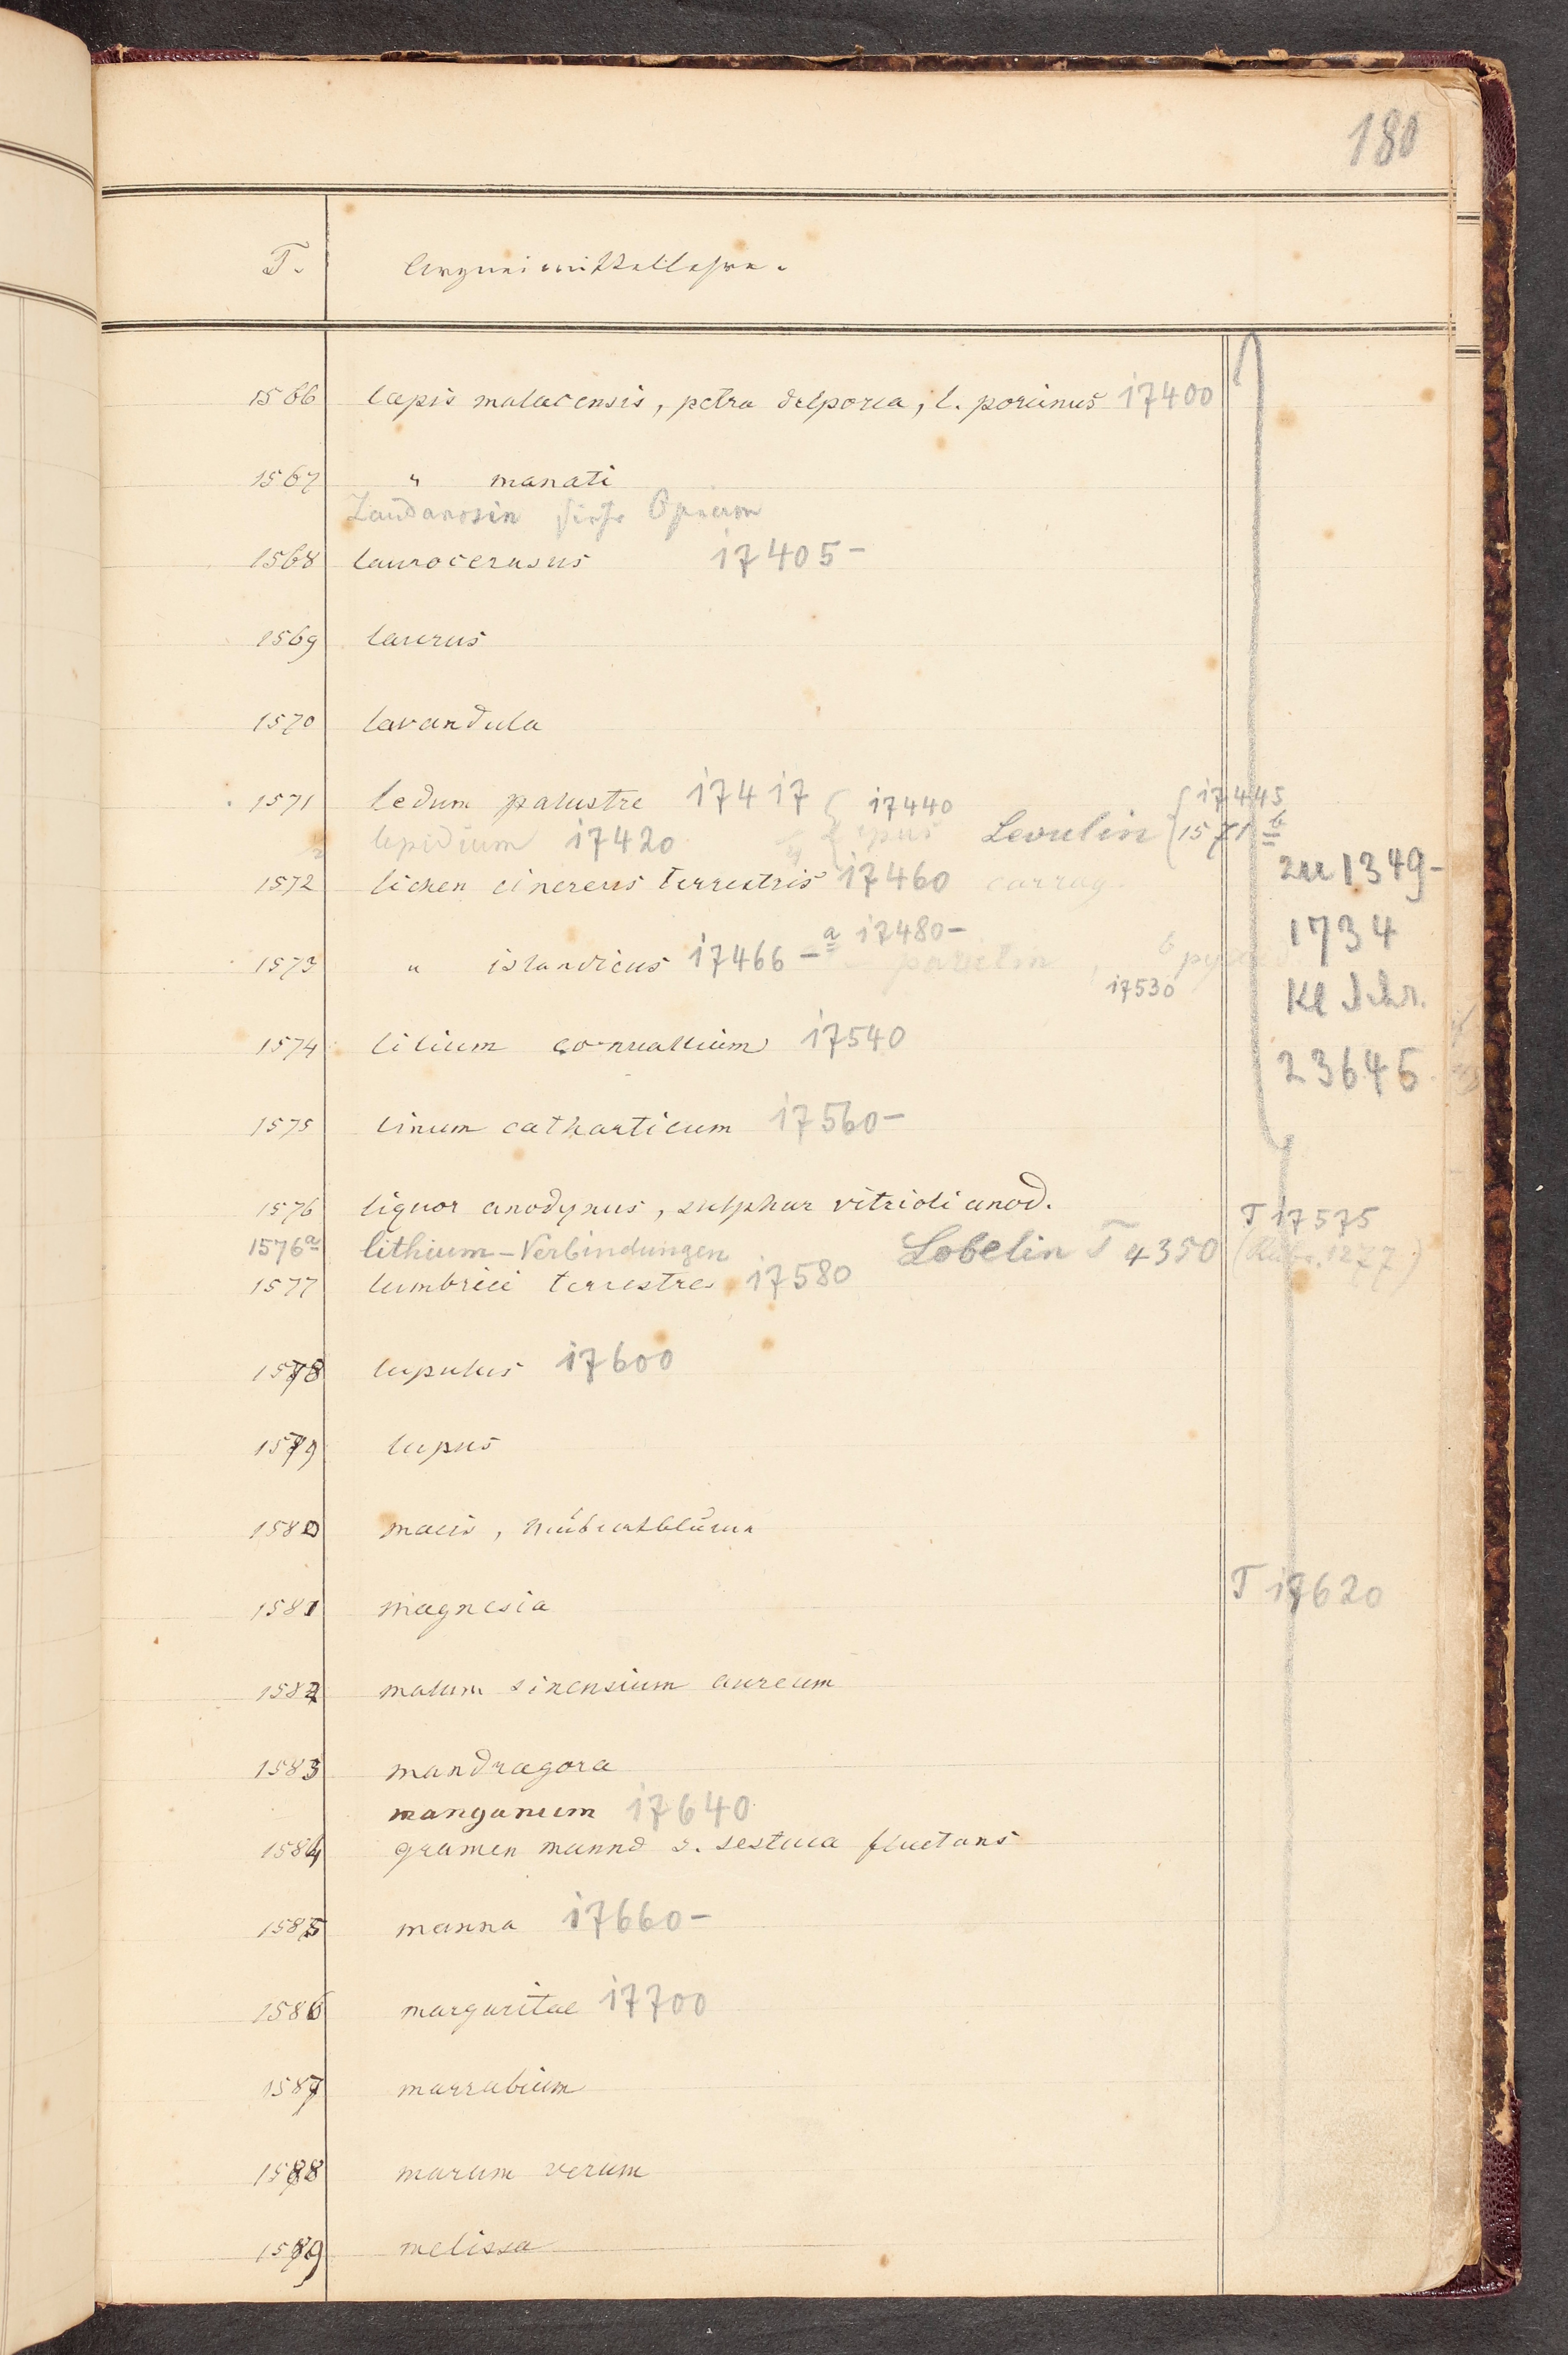 180
T. Arzneimittellehre.
1566 lapis malacensis, petra delporca, l. porcinus 17400
1567 " manati
Laudanosin siehe Opium
1568 laurocerasus 17405-
1569 laurus
1570 lavandula
1571 ledum palustre 17417 17440 Levulin { 17445 1571 b
lepidium 17420
zu 1349-
1572 lichen cinereus terrestris 17460 carrag.
1734
1573 " islandicus 17466 - a 17480-
17530
Kl Schr.
1574 lilium convallium 17540
23646
1575 linum catharticum 17560-
1576 liquor anodynus, sulphur vitrioli anod.
T 17575
1576a lithium-Verbindungen Lobelin T 4350 (Rubr. 1277.)
1577 lumbrici terrestres 17580
1578 lupulus 17600
1579 lupus
1580 macis, Muscatblume
1581 magnesia T 17620
1582 malum sinensium aureum
1583 mandragora
manganum 17640
1584 gramen manna s. festuca fluctans
1585 manna 17660-
1586 margaritae 17700
1587 marrubium
1588 marum verum
1589 melissa